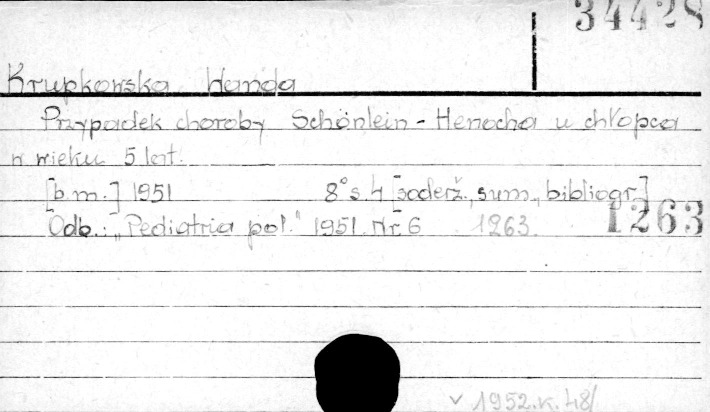 34428
Krupkowska Wanda
Przypadek choroby Schönlein-Henocha u chłopca
w wieku 5 lat.
[b.m.] 1951 8° s. 4 [soderž., sum., bibliogr.]
Odb.: „Pediatria pol." 1951 Nr 6 1263.
1263
v 1952.K.48/